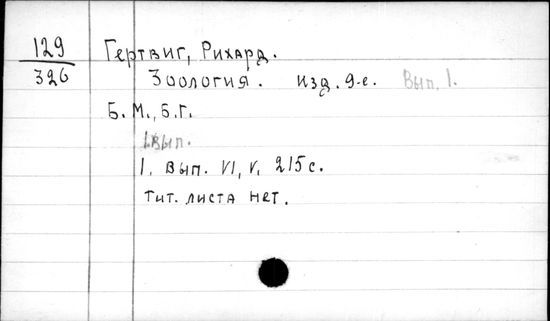 129
326
Гертвиг, Рихард.
Зоология. изд. 9-е. Вып. 1.
Б. М., Б. Г.
1 вып.
1. вып. VI, V, 215 с.
тит. листа нет.